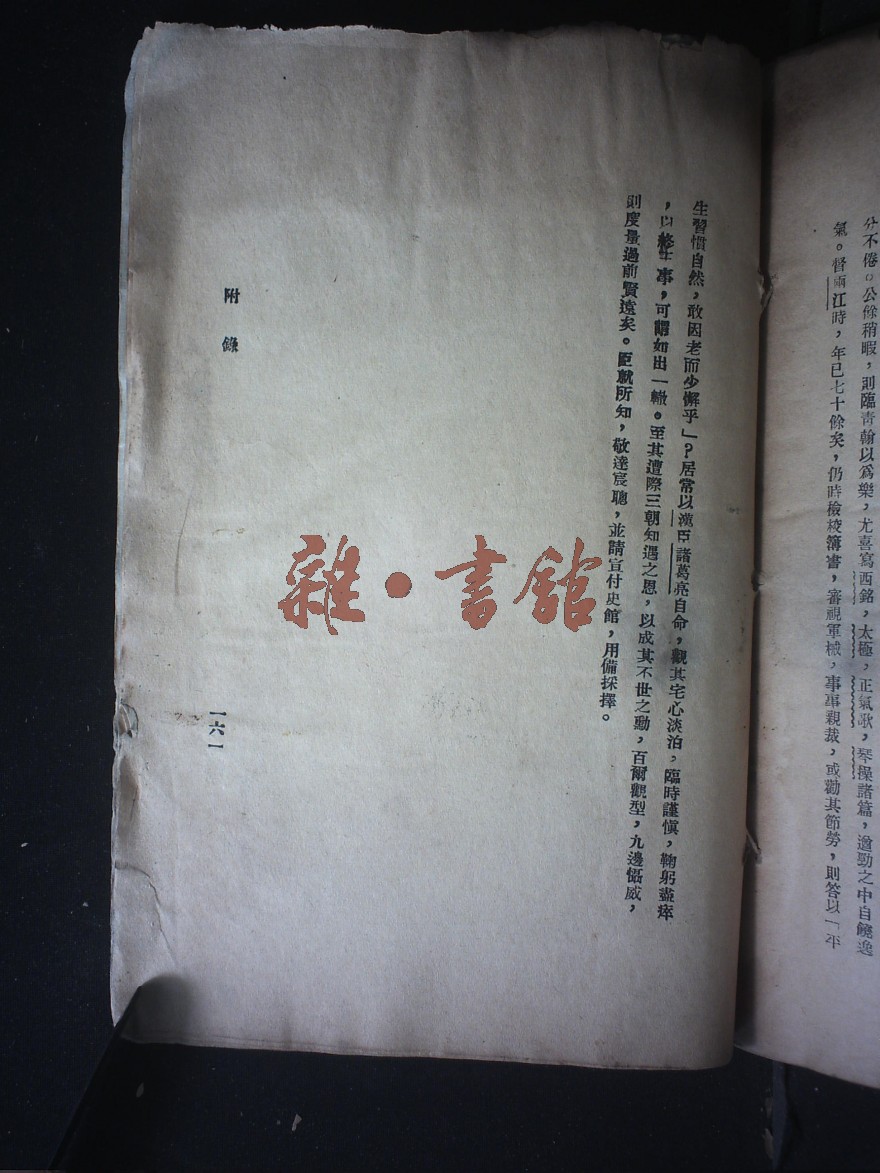 分不倦。公餘稍暇，則臨青翰以爲樂，尤喜寫西銘，太極，正氣歌，琴操諸篇，遒勁之中自饒逸
氣。督兩江時，年已七十餘矣，仍時檢校簿書，審視軍械，事事親裁，或勸其節勞，則答以「平
生習慣自然，敢因老而少懈乎」？居常以漢臣諸葛亮自命，觀其宅心淡泊，臨時謹愼，鞠躬盡瘁
，以終事，可謂如出一轍。至其遭際三朝知遇之恩，以成其不世之勳，百爾觀型，九邊慴威，
則度量過前賢遠矣。臣就所知，敬達宸聰，並請宣付史館，用備採擇。
附錄
一六一
雜·書館